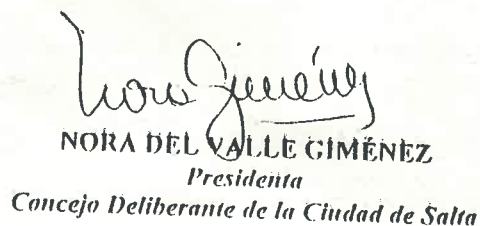 Nora Giménez
NORA DEL VALLE GIMÉNEZ
Presidenta
Concejo Deliberante de la Ciudad de Salta